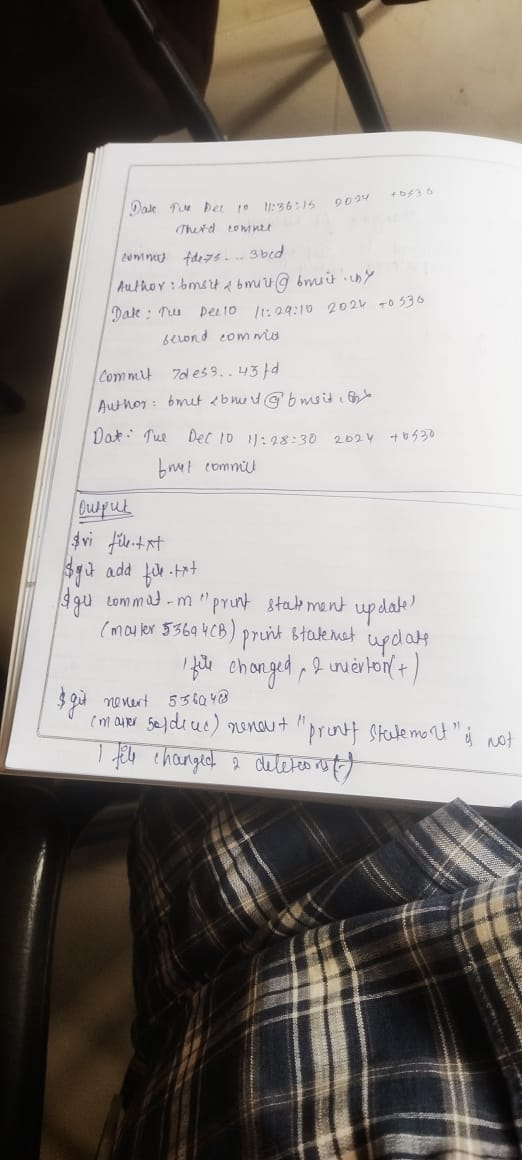 Date Tue Dec 10 11:36:15 2024 +0530
Third commit
commit fde75... 3bcd
Author: bmsit < bmsit@ bmsit.in>
Date: Tue Dec 10 11:29:10 2024 +0530
second commit
Commit 7des3..43fd
Author: bmsit <bmsit@bmsit.
Date: Tue Dec 10 11:28:30 2024 +0530
commit
Output
$vi file.txt
$git add file.txt
$git commit -m "print statement update"
(master 53694CB) print statemet update
1 file changed, 2 insertion(+)
$git revert
(master revert "printf statement" is not
1 file changed 2 deletions(-)